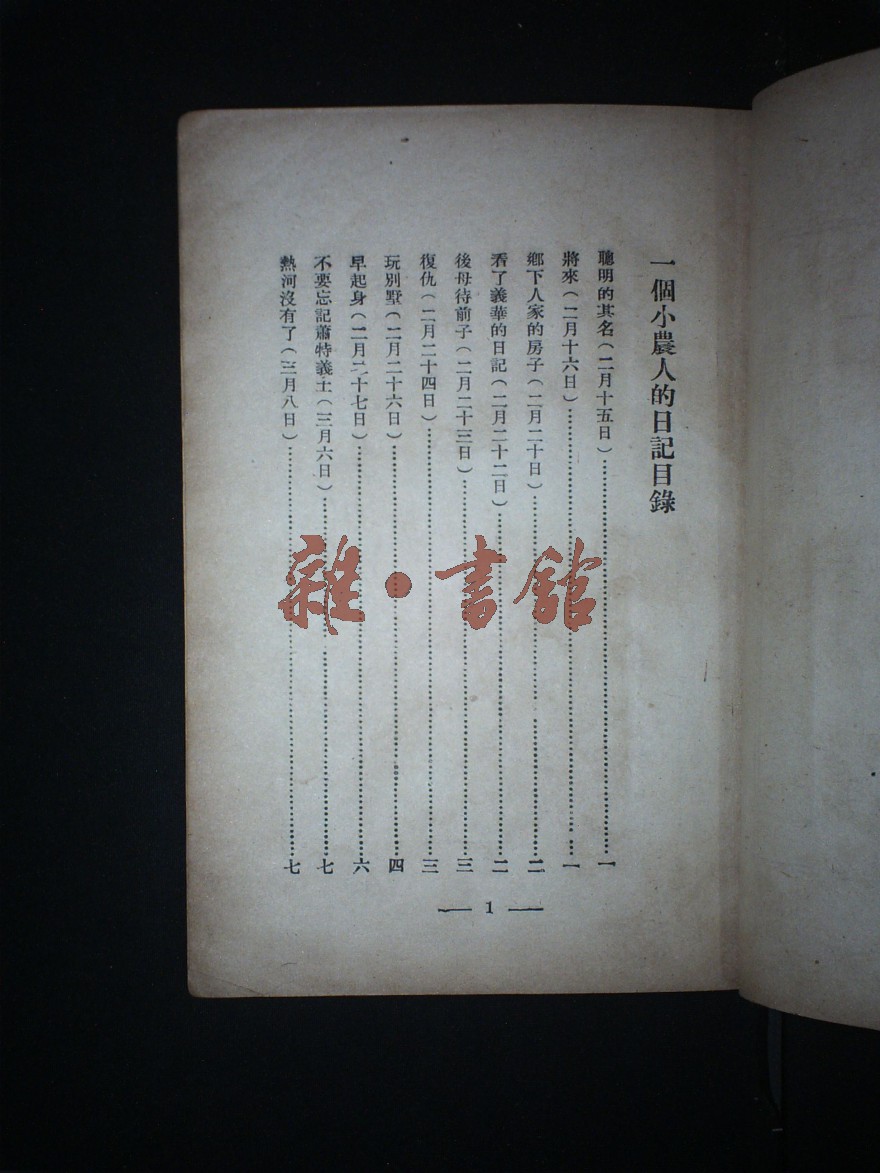 一個小農人的日記目錄
聰明的其名(二月十五日)…………一
將來(二月十六日)…………一
鄉下人家的房子(二月二十日)…………二
看了義華的日記(二月二十二日)…………二
後母待前子(二月二十三日)…………三
復仇(二月二十四日)…………三
玩別墅(二月二十六日)…………四
早起身(二月二十七日)…………六
不要忘記蕭特義士(三月六日)…………七
熱河沒有了(三月八日)…………七
— 1 —
雜·書館